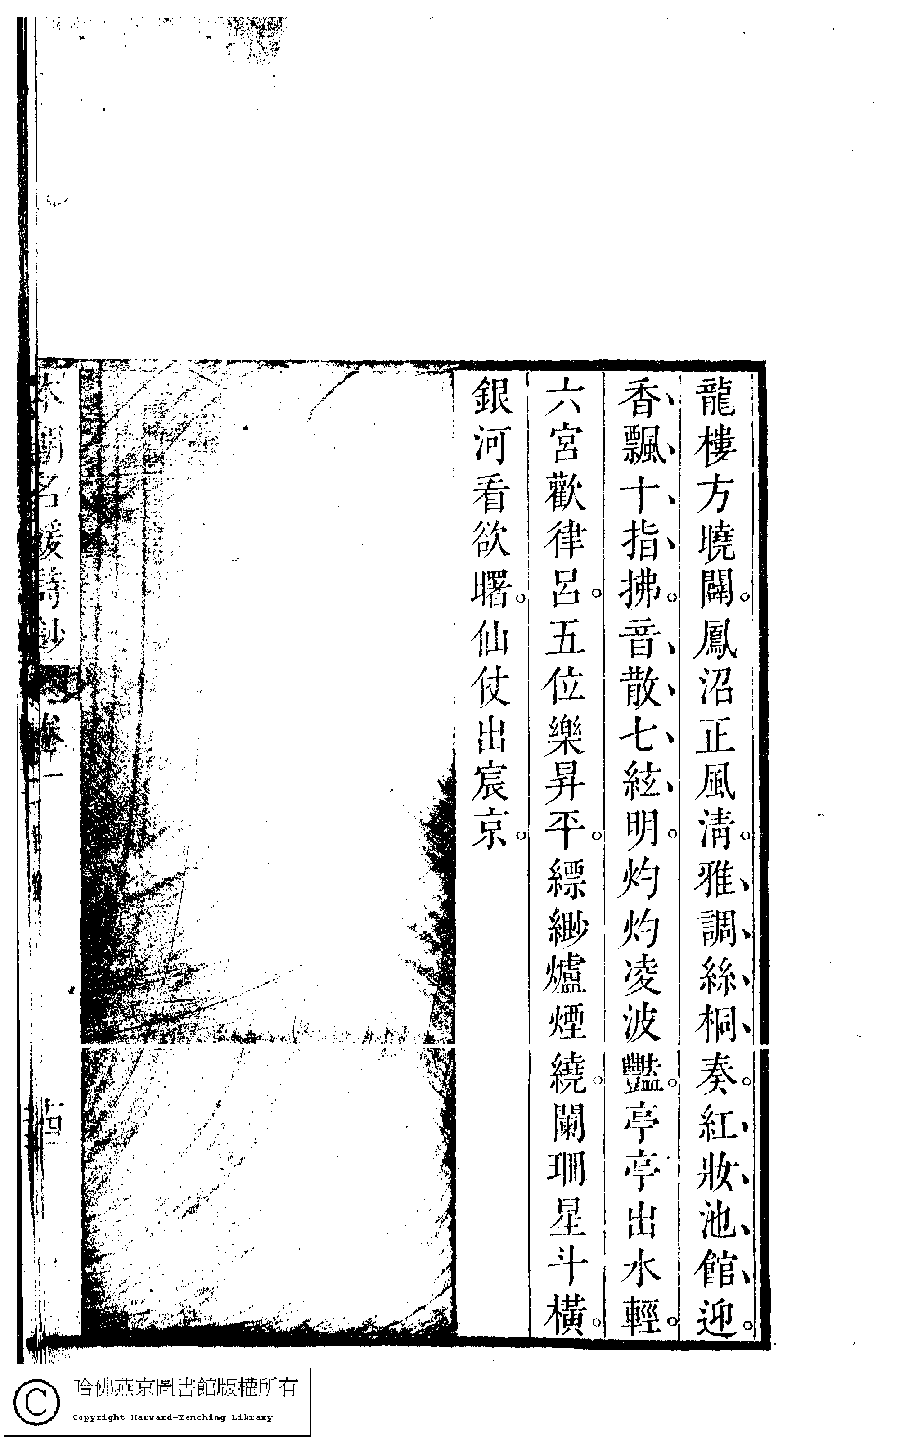 龍樓方曉闢。鳳沼正風清。雅調絲桐奏。紅妝池館迎。
香飄十指拂。音散七絃明。灼灼凌波豔。亭亭出水輕。
六宮歡律呂。五位樂昇平。縹緲爐煙繞。闌珊星斗橫。
銀河看欲曙。仙仗出宸京。
本朝名媛詩鈔
卷一
哈佛燕京圖書館版權所有
Copyright Harvard-Yenching Library